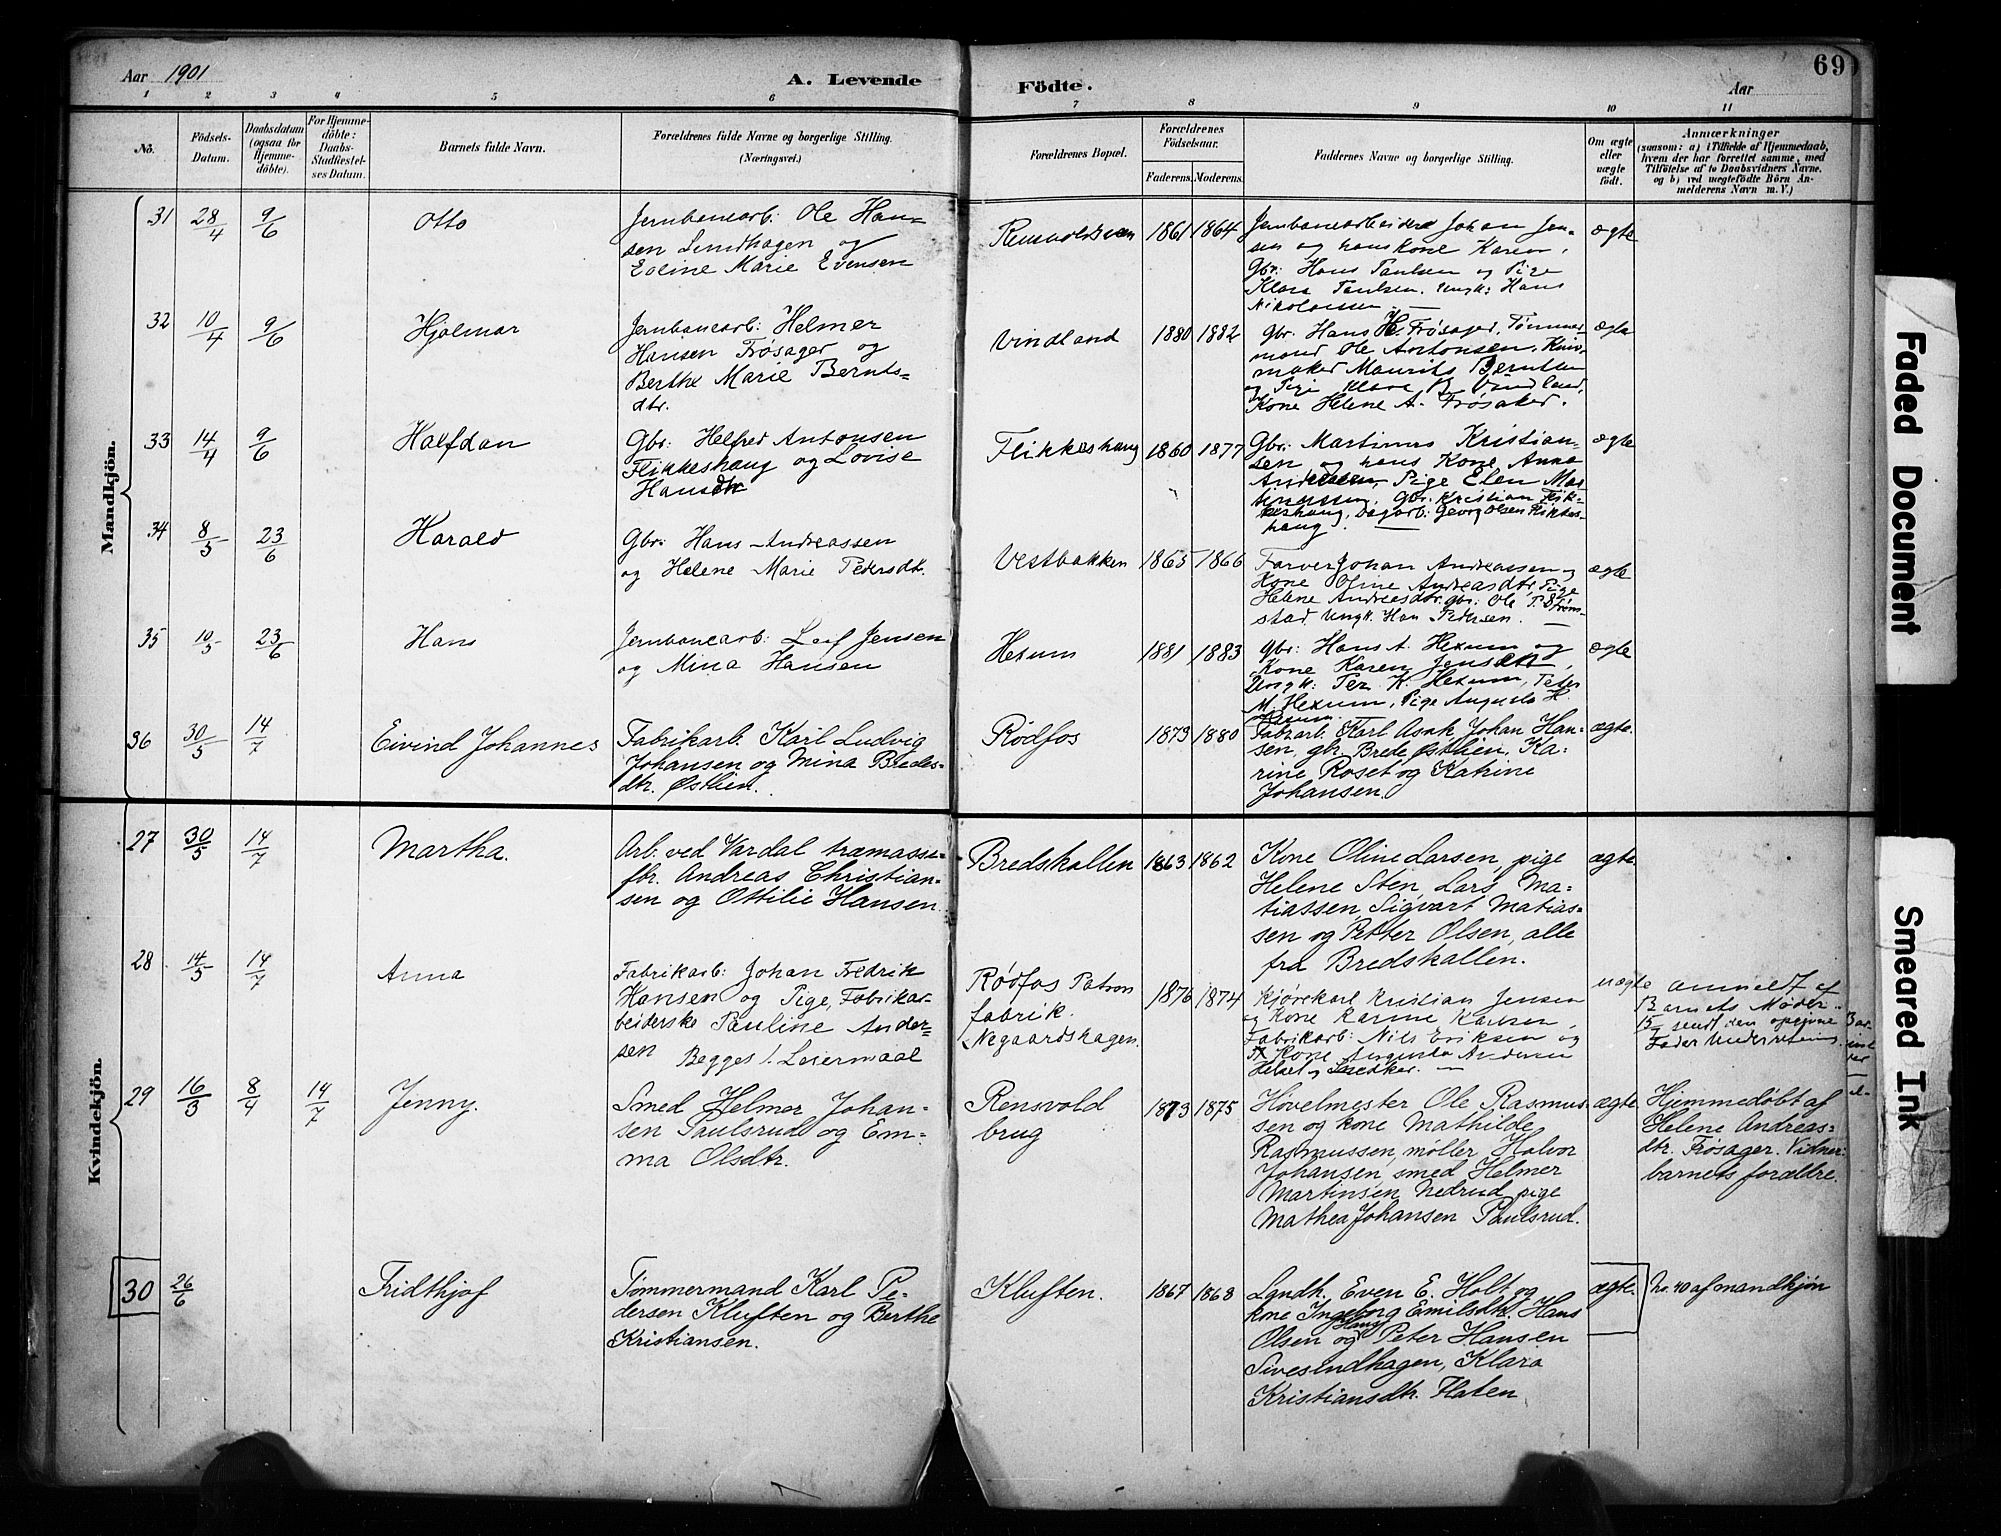 Aar 1901
A. Levende
Födte.
Aar
69
1 2 3 4 5 6 7 8 9 10 11
No.
Födsels-Datum.
Daabsdatum (ogsaa for Hjemme-döbte).
For Hjemme-döbte: Daabs-Stadfæstel-ses Datum.
Barnets fulde Navn.
Forældrenes fulde Navne og borgerlige Stilling.
(Næringsvei.)
Forældrenes Bopæl.
Forældrenes Födselsaar.
Faderens. Moderens.
Faddernes Navne og borgerlige Stilling.
Om ægte eller uægte födt.
Anmærkninger
(saasom: a) i Tilfælde af Hjemmedaab,
hvem der har forrettet samme, med
Tilföielse af to Daabsvidners Navne,
og b) ved uægtefödte Börn An-
melderens Navn m. V.)
Mandkjön.
31 28/4 9/6 Otto
Jernbanearb: Ole Han-
sen Lundhagen og
Evline Marie Evensen
1861 1864
Jernbanearbeider Johan Jen-
sen og hans kone Karen,
Gbr: Hans Paulsen og Pige
Klara Paulsen. Ungk: Hans
Nikolaisen. —
ægte
32 10/4 9/6 Hjalmar
Jernbanearb: Helmer
Hansen Frøsager og
Berthe Marie Bernts-
dtr.
Vindland 1880 1882
Gbr. Hans H. Frøsager, Tømmer-
mand Ole Antonsen,
maker Maurits Berntsen
og Pige Klara B. Vindland,
Kone Helene A. Frøsaker.
ægte
33 14/4 9/6 Halfdan
Gbr: Helfred Antonsen
Flikkeshaug og Lovise
Hansdtr
Flikkeshaug 1860 1877
Gbr: Martinus Kristian-
sen og hans Kone Anne
Andersen, Pige Elen Mar-
tinussen, Gbr. Kristian Flik-
keshaug, Dagarb: Georg Olsen Flikkes-
haug. —
ægte
34 8/5 23/6 Harald
Gbr: Hans Andreassen
og Helene Marie Pedersdt.
Vestbakken 1865 1866
Farver Johan Andreassen og
Kone Oline Andreasdtr, Pige
Helene Andreasdtr. gbr. Ole P. Strøm-
stad Ungk. Han Pedersen. —
ægte
35 10/5 23/6 Hans
Jernbanearb: Leif Jensen
og Mina Hansen
Hexum 1881 1883
Gbr: Hans A. Hexum og
Kone Karen Jensen,
Ungk: Per K. Hexum, Peter
M. Hexum, Pige Augusta H.
Hexum. —
ægte
36 30/5 14/7 Eivind Johannes
Fabrikarb. Karl Ludvig
Johansen og Mina Bredes-
dtr. Østlien.
Rødfos 1873 1880
Fabrarb. Karl Asak, Johan Han-
sen, gbr. Brede Østlien, Ka-
rine Roset og Katrine
Johansen.
ægte.
Kvindekjön.
27 30/5 14/7 Martha.
Arb. ved Vardal træmasse-
fbr. Andreas Christian-
sen og Ottilie Hansen.
Bredskallen 1863 1862
Kone Oline Larsen, pige
Helene Sten, Lars Ma-
tiassen, Sigvart Matias-
sen og Petter Olsen, alle
fra Bredskallen.
ægte
28 14/5 14/7 Anna
Fabrikarb: Johan Fredrik
Hansen og Pige, Fabrikar-
beiderske Pauline Ander-
sen Begges 1. Leiermaal
Rødfos Patron
fabrik.
Negaardshagen.
1876 1874
Kjørekarl Kristian Jensen
og Kone Karine Karlsen,
Fabrikarb: Nils Eriksen og
Kone Augusta Andersen
uægte
Anmeldt af
Barnets Moder.
15/7 sendt den opgivne
Fader Underretning.
29 16/3 8/4 14/7 Jenny.
Smed Helmer Johan-
sen Paulsrud og Em-
ma Olsdtr.
Rensvold
brug
1873 1875
Høvelmester Ole Rasmus-
sen og kone Mathilde
Rasmussen, møller Halvor
Johansen, smed Helmer
Martinsen Nedrud, pige
Mathea Johansen Paulsrud.
ægte
Hjemmedøbt af
Helene Andreas-
dtr. Frøsager. Vidner:
barnets forældre.
30 26/6 Fridthjof
Tømmermand Karl Pe-
dersen Kluften og Berthe
Kristiansen.
Kluften. 1867 1868
Landh. Even E. Holt og
kone Ingeborg Emilsdtr. Hans
Olsen Haug og Peter Hansen
Sivesindhagen, Klara
Kristiansdtr. Flaten
ægte.
No. 40 af mandkjøn
Faded Document
Smeared Ink